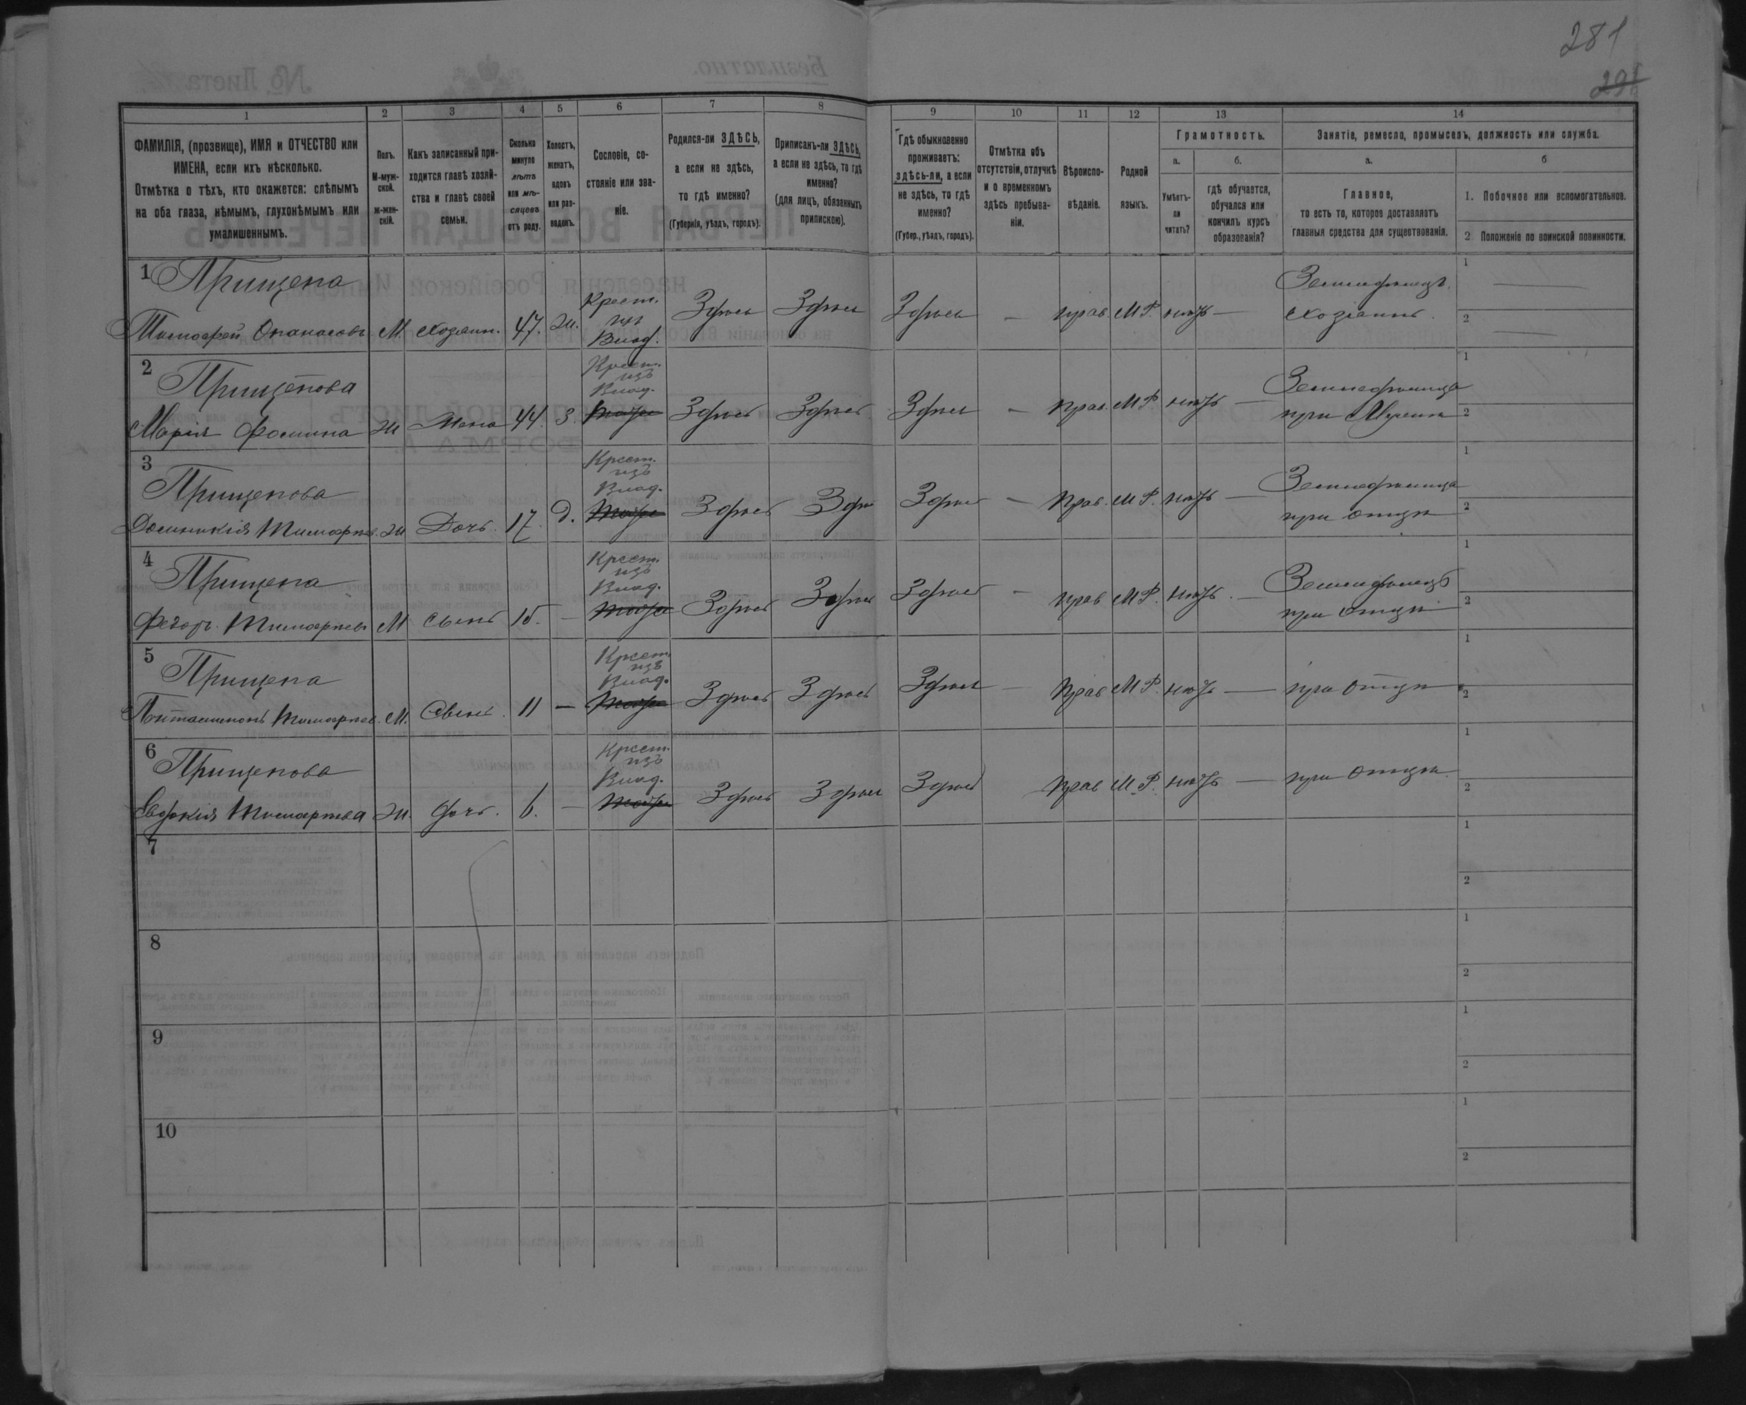 281
291
1 2 3 4 5 6 7 8 9 10 11 12 13 14
ФАМИЛІЯ, (прозвище), ИМЯ и ОТЧЕСТВО или
ИМЕНА, если ихъ нѣсколько.
Отмѣтка о тѣхъ, кто окажется: слѣпымъ
на оба глаза, нѣмымъ, глухонѣмымъ или
умалишеннымъ.
Полъ.
М-муж-
ской.
ж-жен-
скій.
Какъ записанный при-
ходится главѣ хозяй-
ства и главѣ своей
семьи.
Сколько
минуло
лѣтъ
или мѣ-
сяцевъ
отъ роду.
Холостъ,
женатъ,
вдовъ
или раз-
веденъ.
Сословіе, со-
стояніе или зва-
ніе.
Родился-ли ЗДѢСЬ,
а если не здѣсь,
то гдѣ именно?
(Губернія, уѣздъ, городъ).
Приписанъ-ли ЗДѢСЬ,
а если не здѣсь, то гдѣ
именно?
(для лицъ, обязанныхъ
припискою).
Гдѣ обыкновенно
проживаетъ:
здѣсь-ли, а если
не здѣсь, то гдѣ
именно?
(Губер., уѣздъ, городъ).
Отмѣтка объ
отсутствіи, отлучкѣ
и о временномъ
здѣсь пребыва-
ніи.
Вѣроиспо-
вѣданіе.
Родной
языкъ.
Грамотность.
а.
Умѣетъ-
ли
читать?
б.
гдѣ обучается,
обучался или
кончилъ курсъ
образованія?
Занятіе, ремесло, промыселъ, должность или служба.
а.
Главное,
то есть то, которое доставляетъ
главныя средства для существованія.
б
1. Побочное или вспомогательное.
2 Положеніе по воинской повинности.
1 Прищепа
Тимофей Опанасовъ М хозяин. 47. ж. Крест. изъ Влад. Здѣсь Здѣсь Здѣсь — прав. М.Р. нѣтъ — Земледѣлецъ. хозяинъ. 1 — 2 —
2 Прищепова
Марія Фомина ж Жена 44. з. Крест. изъ Влад. Тоже Здѣсь Здѣсь Здѣсь — прав. М.Р. нѣтъ — Земледѣлица при Мужѣ 1 2
3 Прищепова
Тимофѣев. ж Дочь. 17. д. Крест. изъ Влад. Тоже Здѣсь Здѣсь Здѣсь — прав. М.Р. нѣтъ — Земледѣлица при отцѣ 1 2
4 Прищепа
Федоръ Тимофѣевъ М Сынъ 15. — Крест. изъ Влад. Тоже Здѣсь Здѣсь Здѣсь — прав. М.Р. нѣтъ. — Земледѣлецъ при отцѣ. 1 2
5 Прищепа
Тимофѣев. М. Сынъ. 11 — Крест. изъ Влад. Тоже Здѣсь Здѣсь Здѣсь — прав. М.Р. нѣтъ — при отцѣ 1 2
6 Прищепова
Евдокія Тимофѣева ж. дочь. 6. — Крест. изъ Влад. Тоже Здѣсь Здѣсь Здѣсь прав. М.Р. нѣтъ — при отцѣ. 1 2
7 1 2
8 1 2
9 1 2
10 1 2